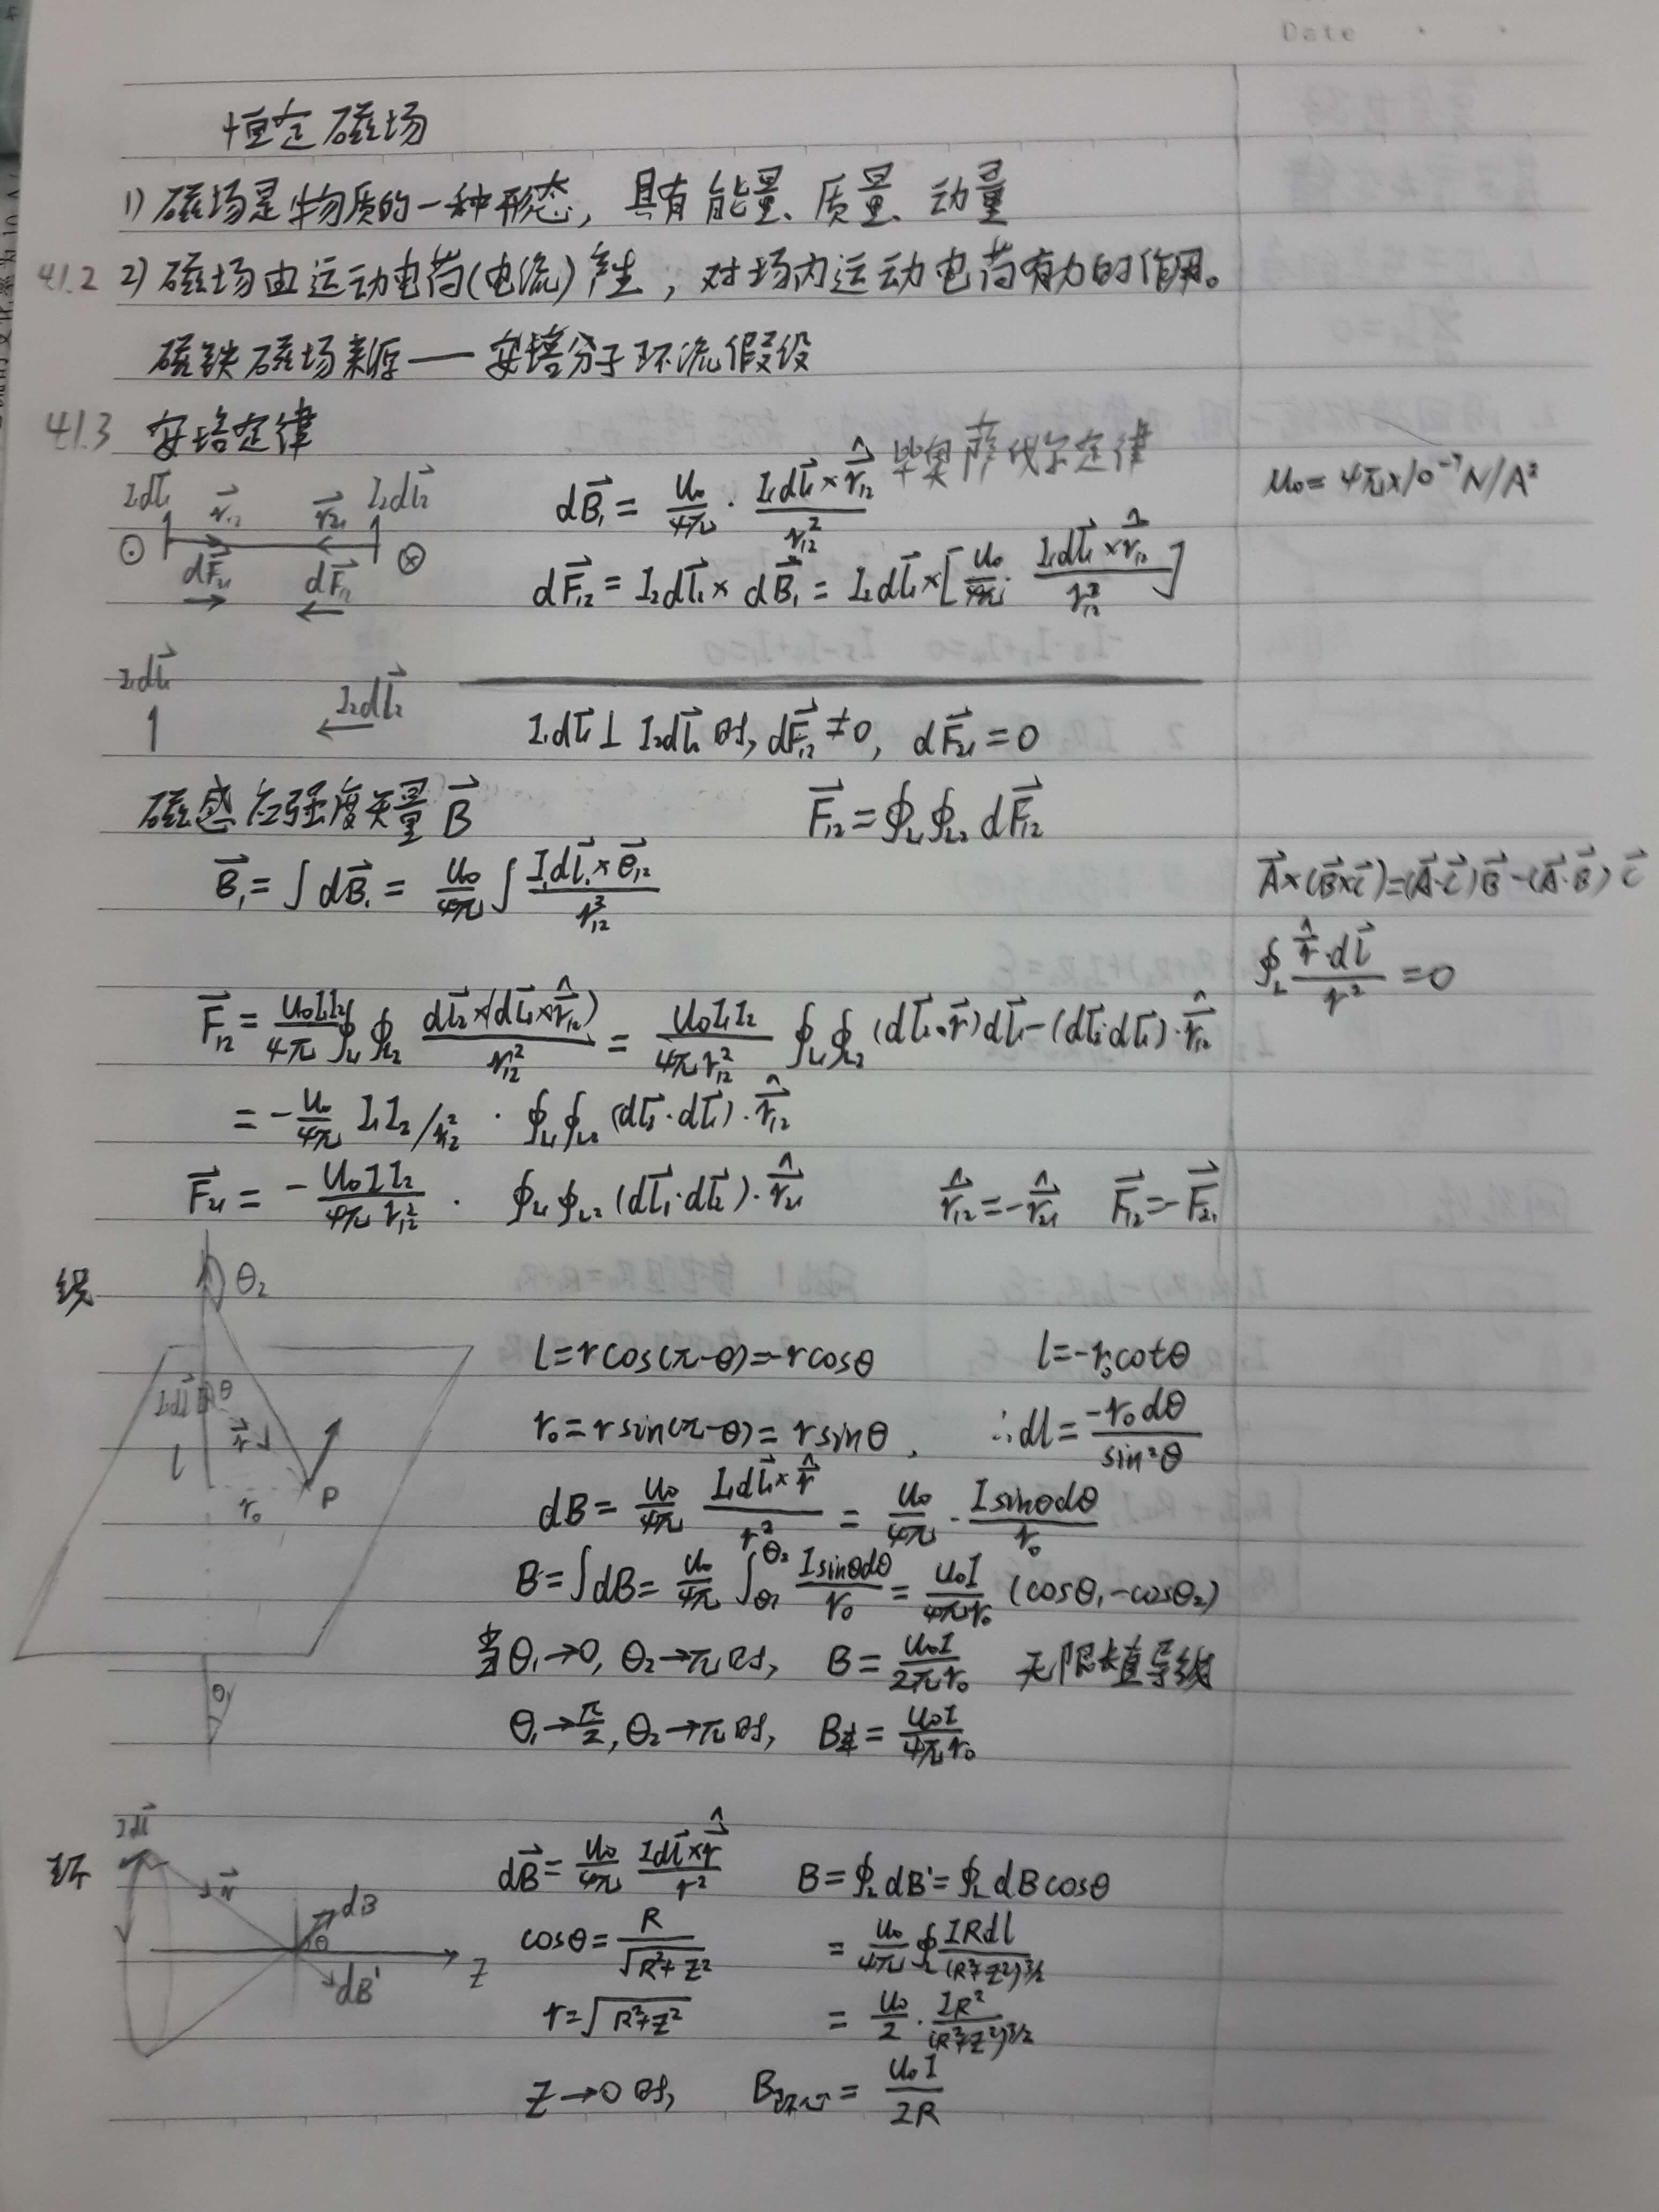 Date
恒定磁场
1) 磁场是物质的一种形态, 具有能量、质量、动量
4.1.2 2) 磁场由运动电荷(电流)产生, 对场内运动电荷有力的作用。
磁铁磁场来源——安培分子环流假设
4.1.3 安培定律
毕奥萨伐尔定律
I₁dl⃗₁ r⃗₁₂ r⃗₂₁ I₂dl⃗₂
⊙ dF⃗₂₁ dF⃗₁₂ ⊗
dB⃗₁ = μ₀/4π · I₁dl⃗₁×r̂₁₂/r₁₂²
μ₀ = 4π×10⁻⁷N/A²
dF⃗₁₂ = I₂dl⃗₂ × dB⃗₁ = I₂dl⃗₂×[μ₀/4π · I₁dl⃗₁×r̂₁₂/r₁₂²]
I₁dl⃗₁ I₂dl⃗₂
I₁dl⃗₁⊥I₂dl⃗₂ 时, dF⃗₁₂≠0, dF⃗₂₁=0
磁感应强度矢量 B⃗
F⃗₁₂=∮L₁∮L₂ dF⃗₁₂
B⃗₁=∫dB⃗₁ = μ₀/4π ∫ I₁dl⃗₁×e⃗₁₂/r₁₂³
A⃗×(B⃗×C⃗)=(A⃗·C⃗)B⃗-(A⃗·B⃗)C⃗
∮L r̂·dl⃗/r² =0
F⃗₁₂ = μ₀I₁I₂/4π ∮L₁∮L₂ dl⃗₂×(dl⃗₁×r̂₁₂)/r₁₂² = μ₀I₁I₂/4πr₁₂² ∮L₁∮L₂ (dl⃗₂·r⃗)dl⃗₁-(dl⃗₂·dl⃗₁)·r̂₁₂
= -μ₀/4π I₁I₂/r₁₂² · ∮L₁∮L₂ (dl⃗₂·dl⃗₁)·r̂₁₂
F⃗₂₁= -μ₀I₁I₂/4πr₁₂² · ∮L₁∮L₂(dl⃗₁·dl⃗₂)·r̂₂₁ r̂₁₂=-r̂₂₁ F⃗₁₂=-F⃗₂₁
线 θ₂
Idl⃗ θ
r⃗
l
r₀ P
θ₁
l=rcos(π-θ)=-rcosθ l=-r₀cotθ
r₀=rsin(π-θ)=rsinθ, ∴dl=-r₀dθ/sin²θ
dB= μ₀/4π I₁dl⃗₁×r̂/r² = μ₀/4π · Isinθdθ/r₀
B=∫dB= μ₀/4π ∫θ₁^θ₂ Isinθdθ/r₀ = μ₀I/4πr₀ (cosθ₁-cosθ₂)
当θ₁→0, θ₂→π时, B= μ₀I/2πr₀ 无限长直导线
θ₁→π/2, θ₂→π时, B半= μ₀I/4πr₀
环 Idl⃗
r⃗ dB
θ
Z
dB'
dB⃗= μ₀/4π Idl⃗×r̂/r² B=∮L dB'=∮L dBcosθ
cosθ= R/√(R²+Z²) = μ₀/4π ∮L IRdl/(R²+Z²)^3/2
r=√(R²+Z²) = μ₀/2 · IR²/(R²+Z²)^3/2
Z→0时, B环心= μ₀I/2R